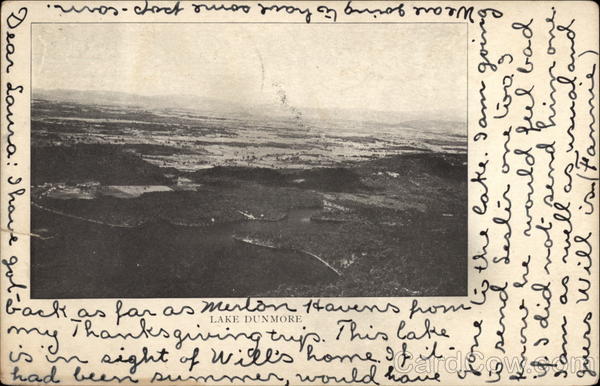 Dear Laura: I have got
back as far as Havens from
my Thanksgiving trip. This lake
is in sight of Will's home. If it
had been summer, would have
gone to the lake. I am going
to send Lester one too. I
know he would feel bad
if I did not send him one.
as well as usual and
Will is
We are going to have some pop-corn.
LAKE DUNMORE
CardCow.com